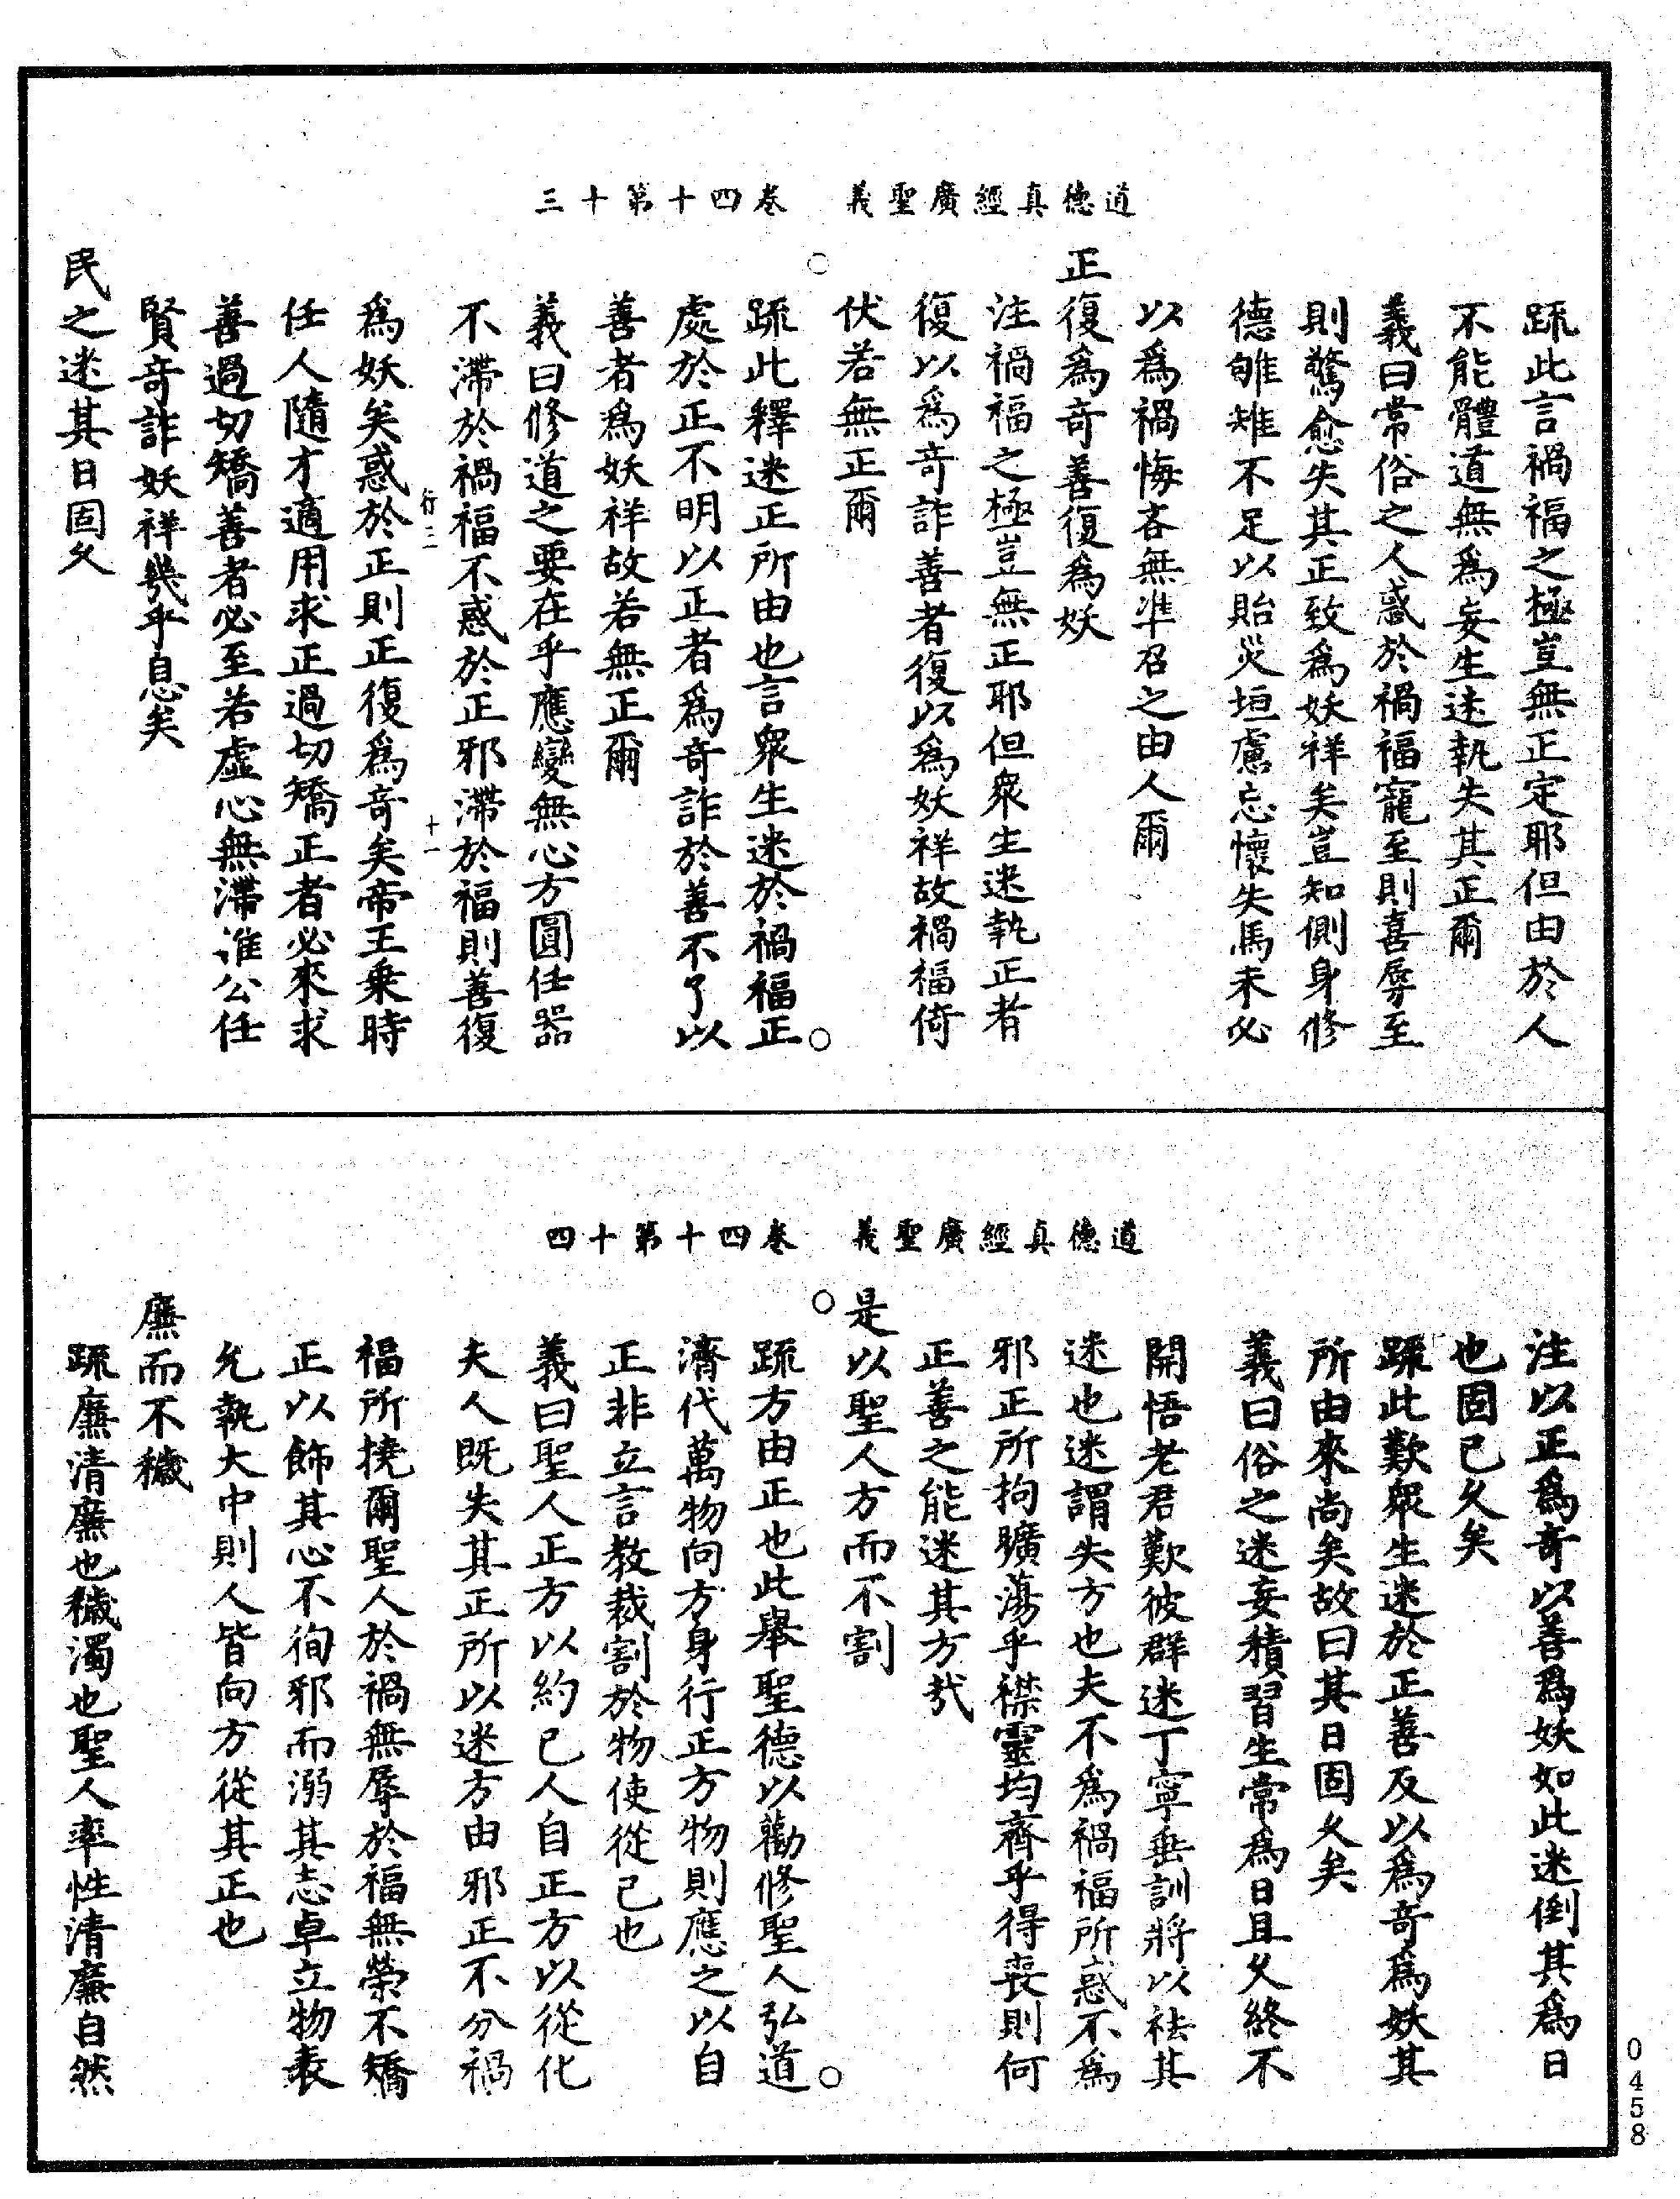 道德真經廣聖義　卷四十第十三
疏此言禍福之極豈無正定耶但由於人
不能體道無爲妄生迷執失其正爾
義曰常俗之人惑於禍福寵至則喜辱至
則驚愈失其正致爲妖祥矣豈知側身修
德雊雉不足以貽災垣慮忘懷失馬未必
以爲禍悔吝無準召之由人爾
正復爲奇善復爲妖
注禍福之極豈無正耶但衆生迷執正者
復以爲奇詐善者復以爲妖祥故禍福倚
伏若無正爾
疏此釋迷正所由也言衆生迷於禍福正
處於正不明以正者爲奇詐於善不了以
善者爲妖祥故若無正爾
義曰修道之要在乎應變無心方圓任器
不滯於禍福不惑於正邪滯於福則善復
行三　十一
爲妖矣惑於正則正復爲奇矣帝王乗時
任人隨才適用求正過切矯正者必來求
善過切矯善者必至若虛心無滯淮公任
賢奇詐妖祥幾乎息矣
民之迷其日固久
道德真經廣聖義　卷四十第十四
注以正爲奇以善爲妖如此迷倒其爲日
也固已久矣
疏此歎衆生迷於正善及以爲奇爲妖其
所由來尚矣故曰其日固久矣
義曰俗之迷妄積習生常爲日且久終不
開悟老君歎彼群迷丁寧垂訓將以祛其
迷也迷謂失方也夫不爲禍福所惑不爲
邪正所拘曠蕩乎襟靈均齊乎得喪則何
正善之能迷其方哉
是以聖人方而不割
疏方由正也此舉聖德以勸修聖人弘道
濟代萬物向方身行正方物則應之以自
正非立言教裁割於物使從已也
義曰聖人正方以約已人自正方以從化
夫人既失其正所以迷方由邪正不分禍
福所撓爾聖人於禍無辱於福無榮不矯
正以飾其心不徇邪而溺其志卓立物表
允執大中則人皆向方從其正也
廉而不穢
疏廉清廉也穢濁也聖人率性清廉自然
0458